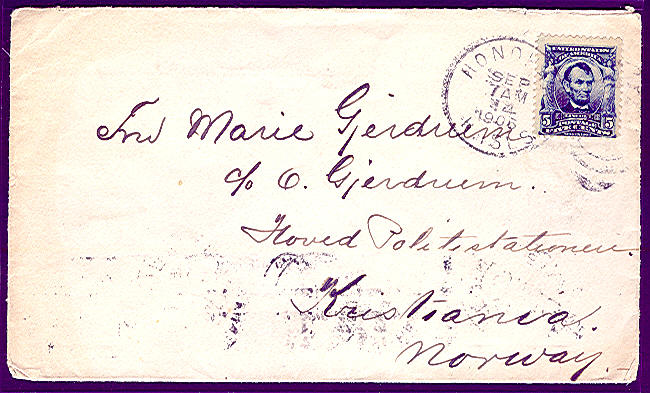 HONO
SEP
7 AM
1905
UNITED STATES
OF AMERICA
5 5
FIVE CENTS
Fru Marie Gjerdrum
c/o O. Gjerdrum.
Hoved Politistationen
Kristiania.
Norway.